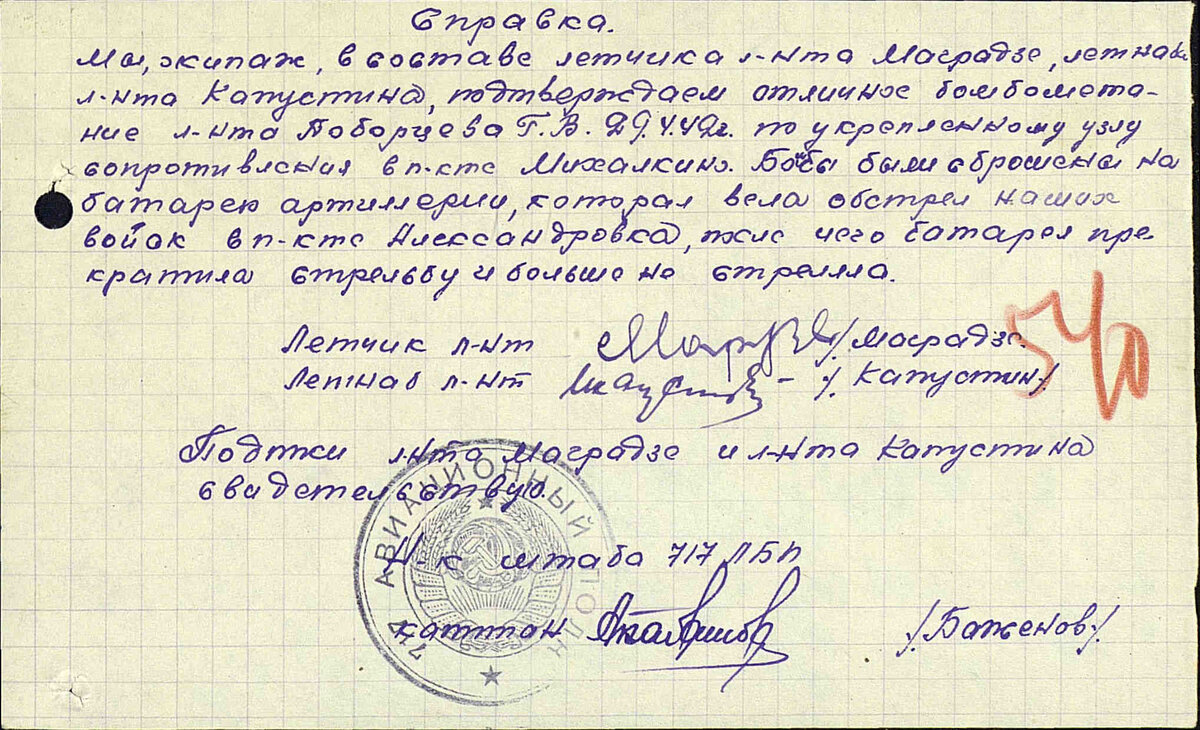 Справка.
Мы, экипаж, в составе летчика л-нта Маградзе, летнаб
л-нта Капустина, подтверждаем отличное бомбомета-
ние л-нта Поборцева Г.В. 29.4.42г. по укрепленному узлу
сопротивления в п-кте Михалкино. Бомбы были сброшены на
батарею артиллерии, которая вела обстрел наших
войск в п-кте Александровка, после чего батарея пре
кратила стрельбу и больше не стреляла.
Летчик л-нт /Маградзе.
Летнаб л-нт - /. Капустин/.
54/0
Подписи л-нта Маградзе и л-нта Капустина
свидетельствую.
Н-к штаба 717 ЛБП
капитан /.Баженов/.
717 АВИАЦИОННЫЙ ПОЛК